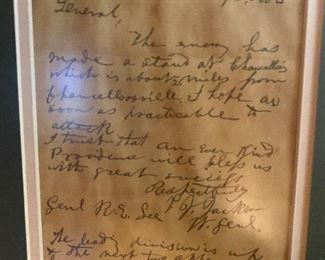 General,
The enemy has
made a stand at Chancellor's
which is about 2 miles from
Chancellorsville. I hope as
soon as practicable to
attack
I trust that an Ever Kind
Providence will bless us
with great success
Respectfully
Genl R. E. Lee T. J. Jackson
Lt. Genl.
The leading division is up
& the next two